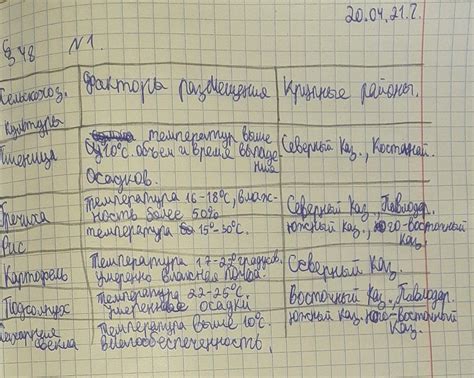 20.04.21.г.
§ 48 №1.
Сельскохоз. культуры | Факторы размещения | Крупные районы.
Пшеница | температур выше 10°С. объем и время выпадения осадков. | Северный Каз., Костанай.
Гречиха | температура 16-18°С, влажность более 50% | Северный Каз., Павлодар.
Рис | температура 15°-30°С. | Южный каз., Юго-восточный Каз.
Картофель | Температура 17-22° градусов. умеренно влажная почва. | Северный Каз.
Подсолнух | температура 22-25°С. умеренные осадки | Восточный Каз. Павлодар.
Сахарная свекла | Температура выше 10°С. влагообеспеченность. | Южный Каз. Юго-Восточный Каз.